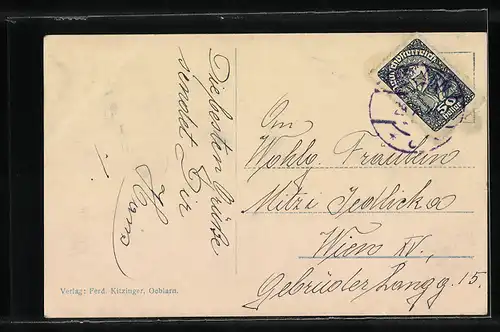 Die besten Grüße
sendet Dir
Hans
Deutschösterreich
50
An
Wohlg. Fräulein
Mitzi Jedlicka
Wien XV.,
Gebrüder Langg. 15.
Verlag: Ferd. Kitzinger, Oeblarn.